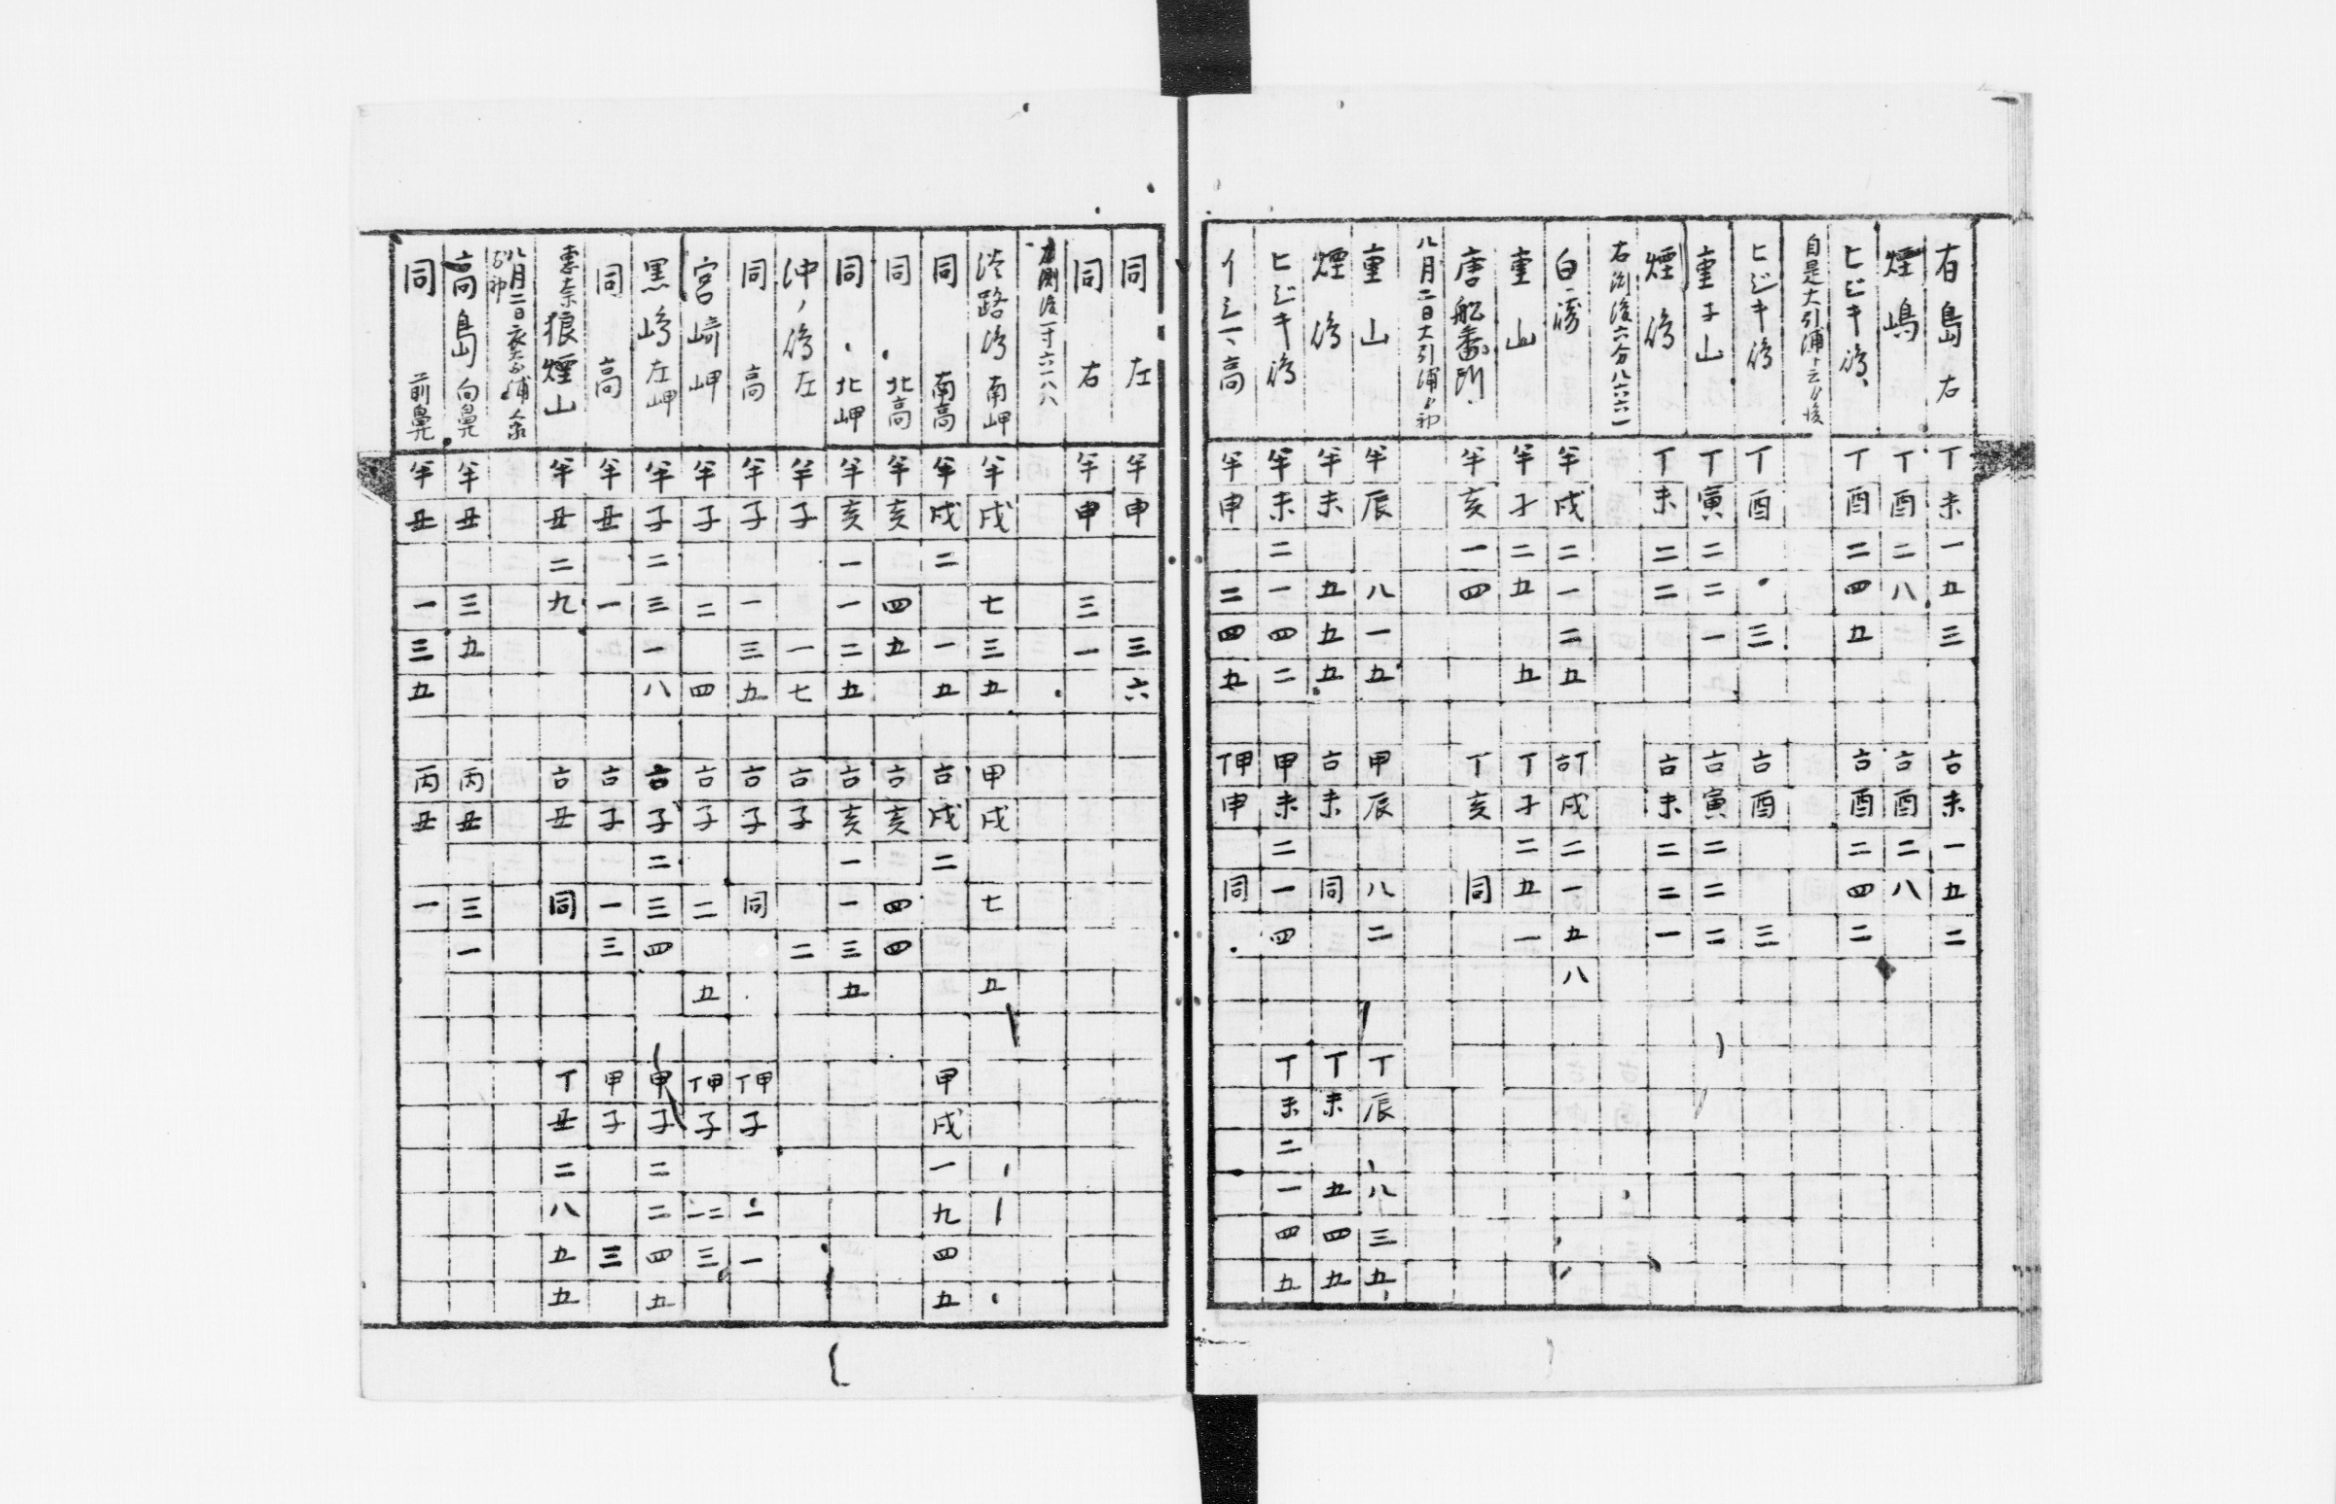 有島 右 丁未一五三 古未一五二
煙嶋 丁酉二八 古酉二八
ヒビキ㟢 丁酉二四五 古酉二四二
自是大引浦
ヒジキ㟢 丁酉三 古酉三
童子山 丁寅二二一 古寅二二二
煙㟢 丁未二二 古未二二一
右測後六分八六六一
白㟢 半戌二一二五 古丁戌二一五八
童山 半子二五五 丁子二五一
唐船番所 半亥一四 丁亥同
八月二日大引浦ヨリ初
童山 半辰八一五 甲辰八二 丁辰八三五
煙㟢 半未五五五 古未同 丁未五四五
ヒジキ㟢 半未二一四二 甲未二一四 丁未二一四五
高 半申二四五 丁甲申同
同 左 半申三六
同 右 半申三一
右測後一寸六一八八
淡路㟢 南岬 半戌七三五 甲戌七五
同 南高 半戌二一五 古戌二 甲戌一九四五
同 北高 半亥四五 古亥四四
同 北岬 半亥一一二五 古亥一一三五
沖ノ㟢 左 半子一七 古子二
同 高 半子一三五 古子同 丁甲子二一
宮崎岬 半子二四 古子二五 丁甲子一二三
黒嶋 左岬 半子二三一八 古子二三四 甲子二二四五
同 高 半丑一 古子一三 甲子三
衣奈狼煙山 半丑二九 古丑同 丁丑二八五五
八月二日衣奈浦
高島 向鼻 半丑三五 丙丑三一
同 前鼻 半丑一三五 丙丑一